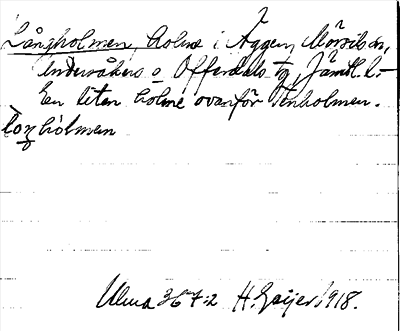 Långholmen, holme i Äggen, Mörsils sn,
Undersåkers o Offerdals tg, Jämtl. l.
En liten holme ovanför Enholmen.
lòŋhòlmen
Ulma 367:2 H. Geijer 1918.